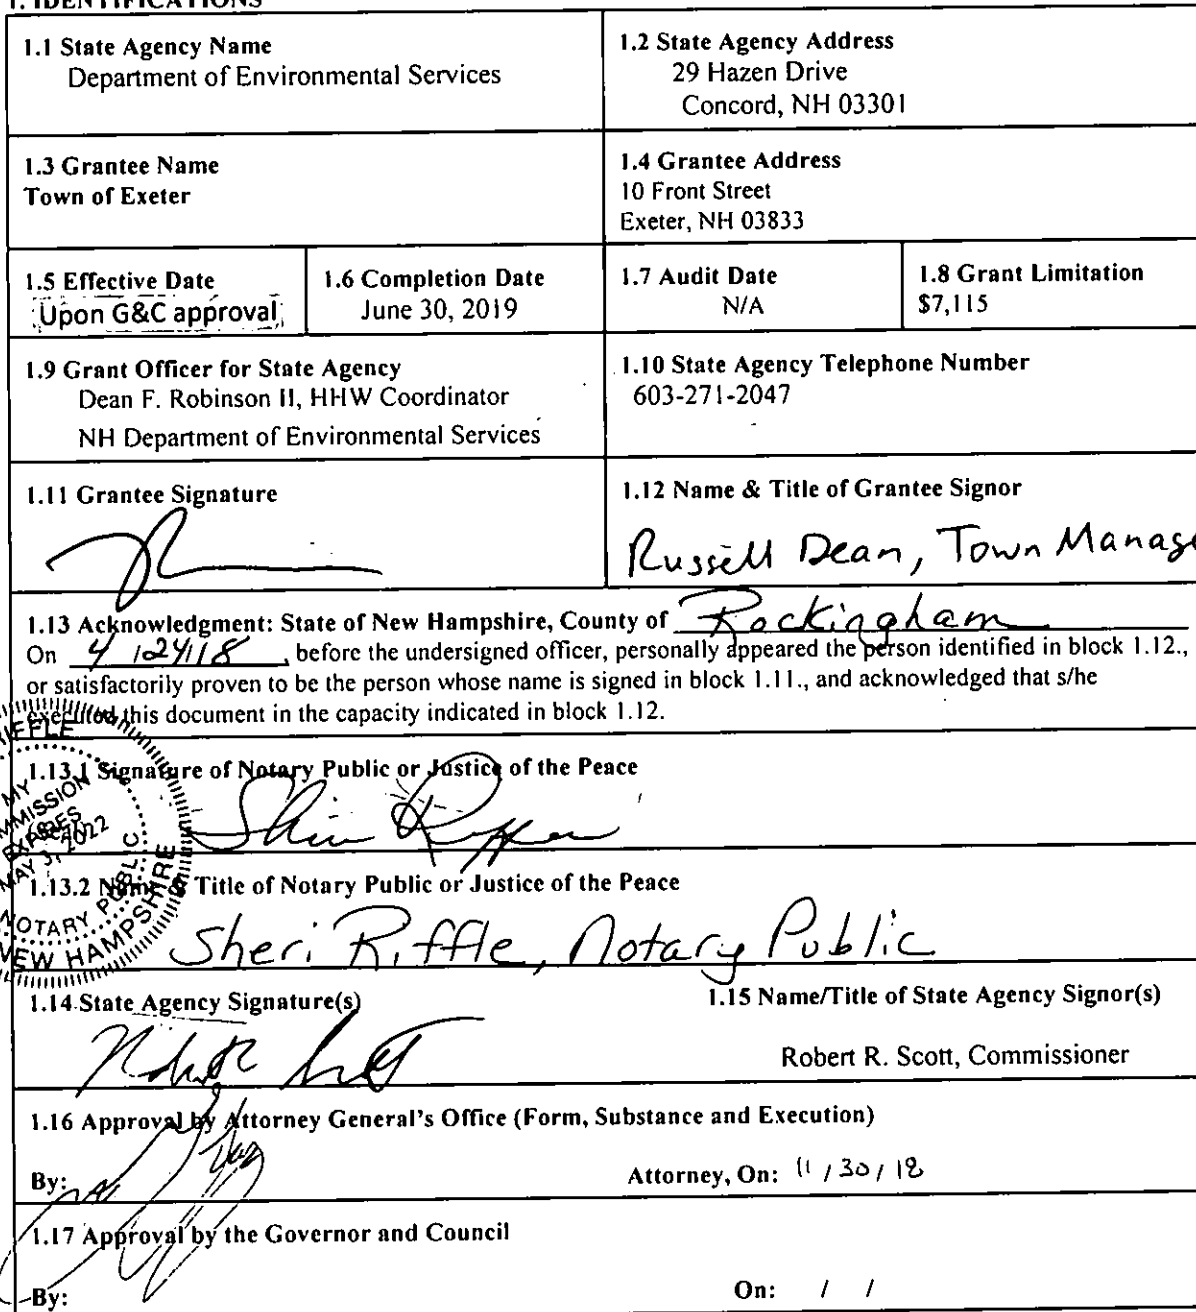 1. IDENTIFICATIONS
1.1 State Agency Name
Department of Environmental Services
1.2 State Agency Address
29 Hazen Drive
Concord, NH 03301
1.3 Grantee Name
Town of Exeter
1.4 Grantee Address
10 Front Street
Exeter, NH 03833
1.5 Effective Date
Upon G&C approval
1.6 Completion Date
June 30, 2019
1.7 Audit Date
N/A
1.8 Grant Limitation
$7,115
1.9 Grant Officer for State Agency
Dean F. Robinson II, HHW Coordinator
NH Department of Environmental Services
1.10 State Agency Telephone Number
603-271-2047
1.11 Grantee Signature
1.12 Name & Title of Grantee Signor
Russell Dean, Town Manage
1.13 Acknowledgment: State of New Hampshire, County of Rockingham
On 4/24/18, before the undersigned officer, personally appeared the person identified in block 1.12.,
or satisfactorily proven to be the person whose name is signed in block 1.11., and acknowledged that s/he
executed this document in the capacity indicated in block 1.12.
1.13.1 Signature of Notary Public or Justice of the Peace
MY
COMMISSION
EXPIRES
MAY 3, 2022
NOTARY PUBLIC
NEW HAMPSHIRE
1.13.2 Name & Title of Notary Public or Justice of the Peace
Sheri Riffle, Notary Public
1.14 State Agency Signature(s)
1.15 Name/Title of State Agency Signor(s)
Robert R. Scott, Commissioner
1.16 Approval by Attorney General's Office (Form, Substance and Execution)
By:
Attorney, On: 11/30/18
1.17 Approval by the Governor and Council
By:
On: / /